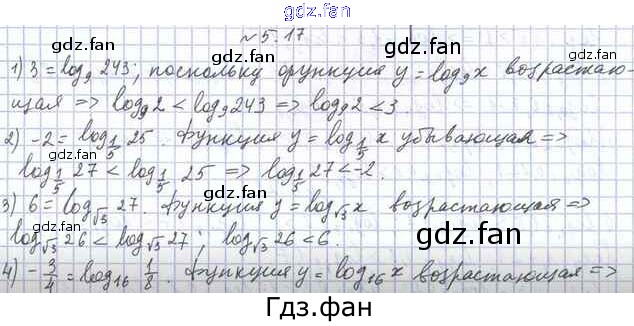 gdz.fan
№5.17
gdz.fan gdz.fan
1) 3 = log₉ 243; поскольку функция y = log₉x возрастаю-
щая => log₉2 < log₉243 => log₉2 < 3.
2) -2 = log_{1/5} 25. Функция y = log_{1/5} x убывающая =>
log_{1/5} 27 < log_{1/5} 25 => log_{1/5} 27 < -2.
gdz.fan gdz.fan
3) 6 = log_{√3} 27. Функция y = log_{√3} x возрастающая =>
log_{√3} 26 < log_{√3} 27; log_{√3} 26 < 6.
gdz.fan gdz.fan
4) -3/4 = log₁₆ 1/8. Функция y = log₁₆ x возрастающая =>
Гдз.фан